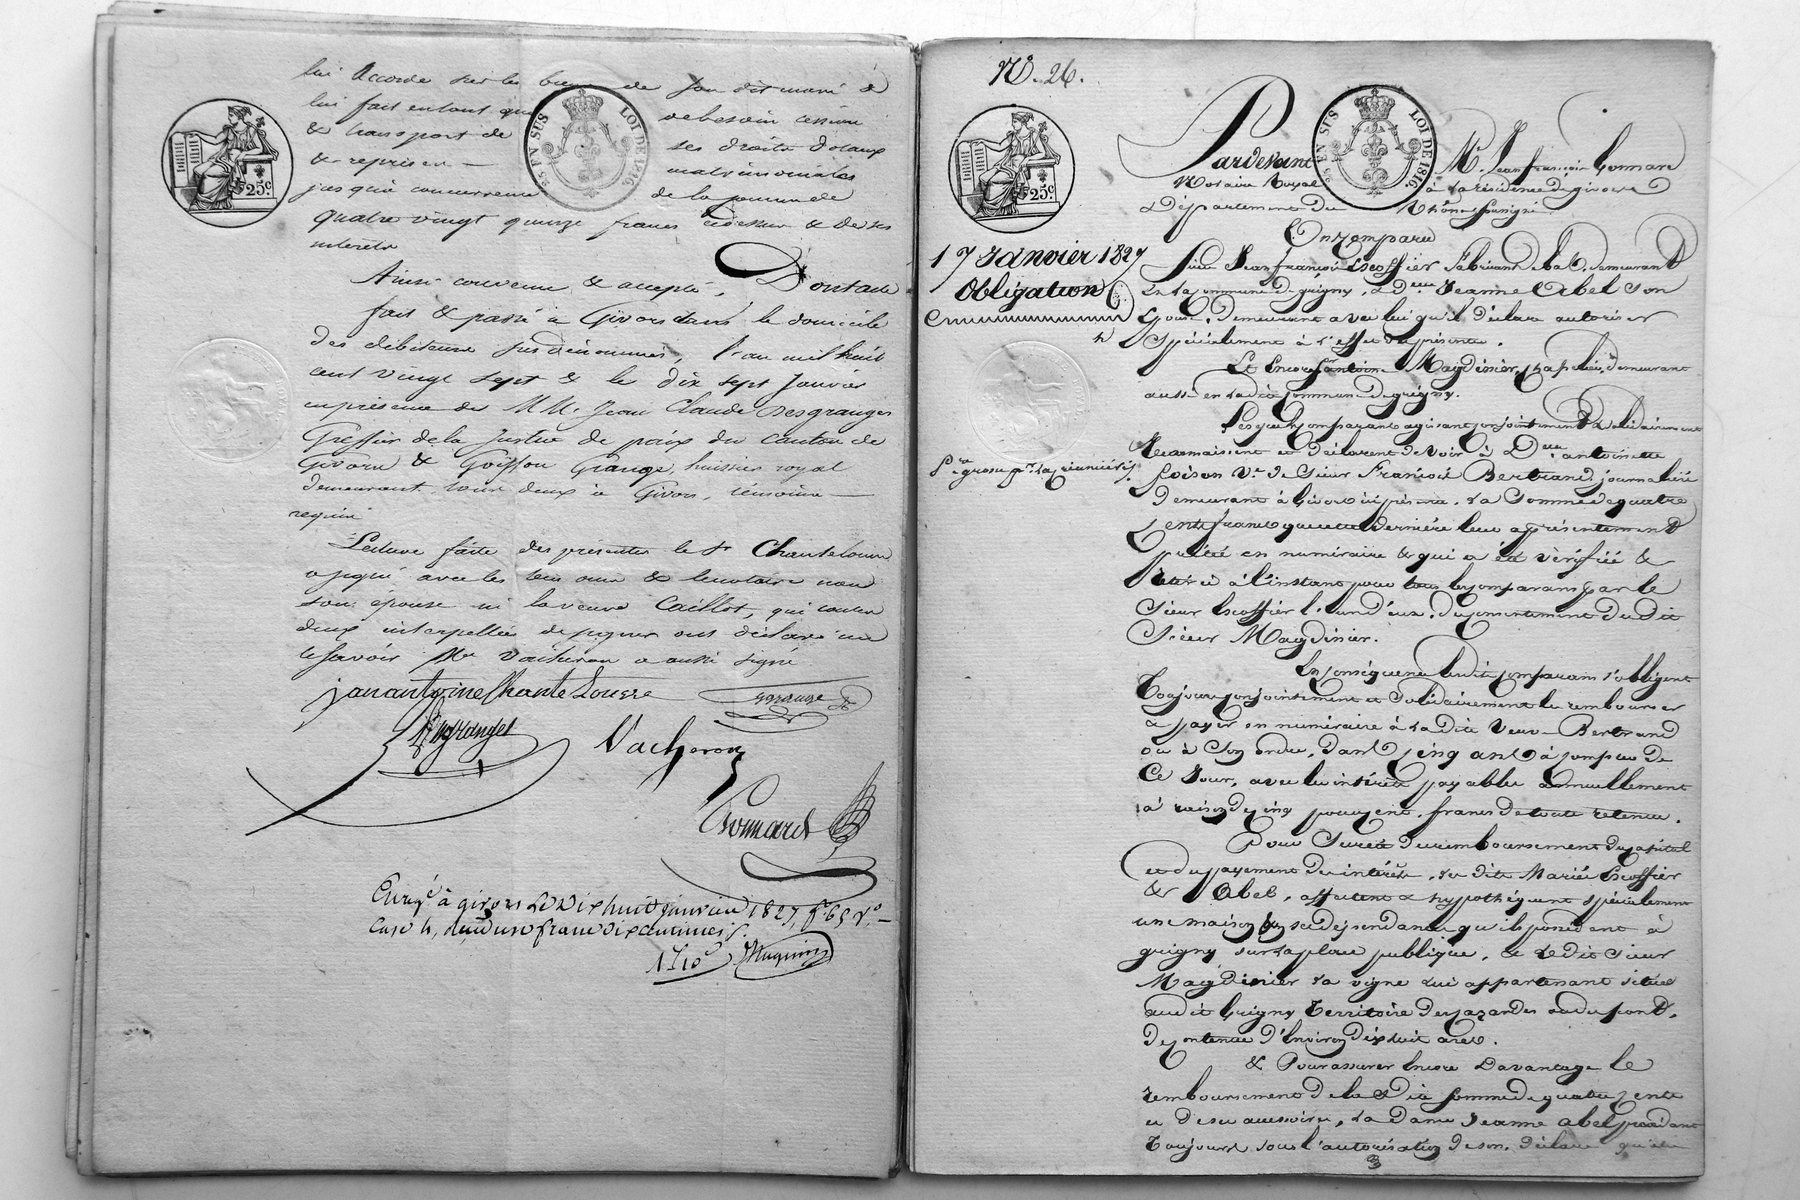 lui accorde sur les biens de son dit mari &
lui fait en tant que de besoin cession
& transport de ses droits dotaux
& reprises matrimoniales
jusqu'à concurrence de la somme de
quatre vingt quinze francs & de ses
intérêts
Ainsi convenu & accepté, Dont acte
fait & passé à Givors dans le domicile
des débiteurs susdénommés, l'an mil huit
cent vingt sept & le dix sept Janvier
en présence de MM. Jean Claude Desgranges
Greffier de la Justice de paix du canton de
Givors & Goiffon Grange, huissier royal
demeurant tous deux à Givors, témoins
requis
Lecture faite des présentes le Sr Chantelouve
a signé avec les témoins & le notaire non
son épouse ni la veuve Caillot, qui toutes
deux interpellées de signer ont déclaré ne
le savoir Mr Vacheron a aussi signé
jan antoine Chante Louve
Grange
Desgranges
Vacheron
Bonnard
Enregé à givors le Dix huit janvier 1827, fo 65 Vo
Case 4, reçu un franc dix centimes
1 f 10c
25c
EN SUS LOI DE 1816
No. 26.
25c
EN SUS LOI DE 1816
17 Janvier 1827
Obligation
Pardevant Me Jean françois bonnard
Notaire Royal à la résidence de givors
Département du Rhône soussigné
Ont comparu
Sieur Jean françois Escoffier fabricant de bas, demeurant
en la commune de grigny, & De Jeanne Abel son
épouse, demeurant avec lui qu'il déclare autoriser
spécialement à l'effet des présentes.
Et Encore Sr antoine Magdinier, chapelier, demeurant
aussi en la dite commune de grigny.
Lesquels comparants agissant conjointement & solidairement
Reconnaissent et déclarent devoir à De antoinette
foison Ve de Sieur François Bertrand, journalière
demeurant à Givors ici présente, la Somme de quatre
Cents francs que cette dernière leur a présentement
prêté en numéraire & qui a été vérifiée &
retirée à l'instant pour tous les comparans par le
Sieur Escoffier l'un d'eux, du consentement du dit
Sieur Magdinier.
En conséquence lesdits comparans s'obligent
toujours conjointement et solidairement de rembourser
& payer en numéraire à la dite Veuve Bertrand
ou à Son ordre, dans Cinq ans à compter de
Ce Jour, avec les intérêts payables annuellement
à raison de cinq pour cent, francs de toute retenue.
Pour Sureté du remboursement du capital
et du payement des intérêts, les dits Mariés Escoffier
& Abel, affectent & hypothèquent spécialement
une maison & ses dépendances qu'ils possèdent à
grigny sur la place publique, & Le dit Sieur
Magdinier la vigne lui appartenant située
audit Grigny territoire des
de contenue d'Environ dix huit ares.
& Pour assurer Encore Davantage le
remboursement de la dite Somme de quatre cents
& de ses accessoires, la Dame Jeanne abel procédant
toujours sous l'autorisation de son, déclare qu'elle